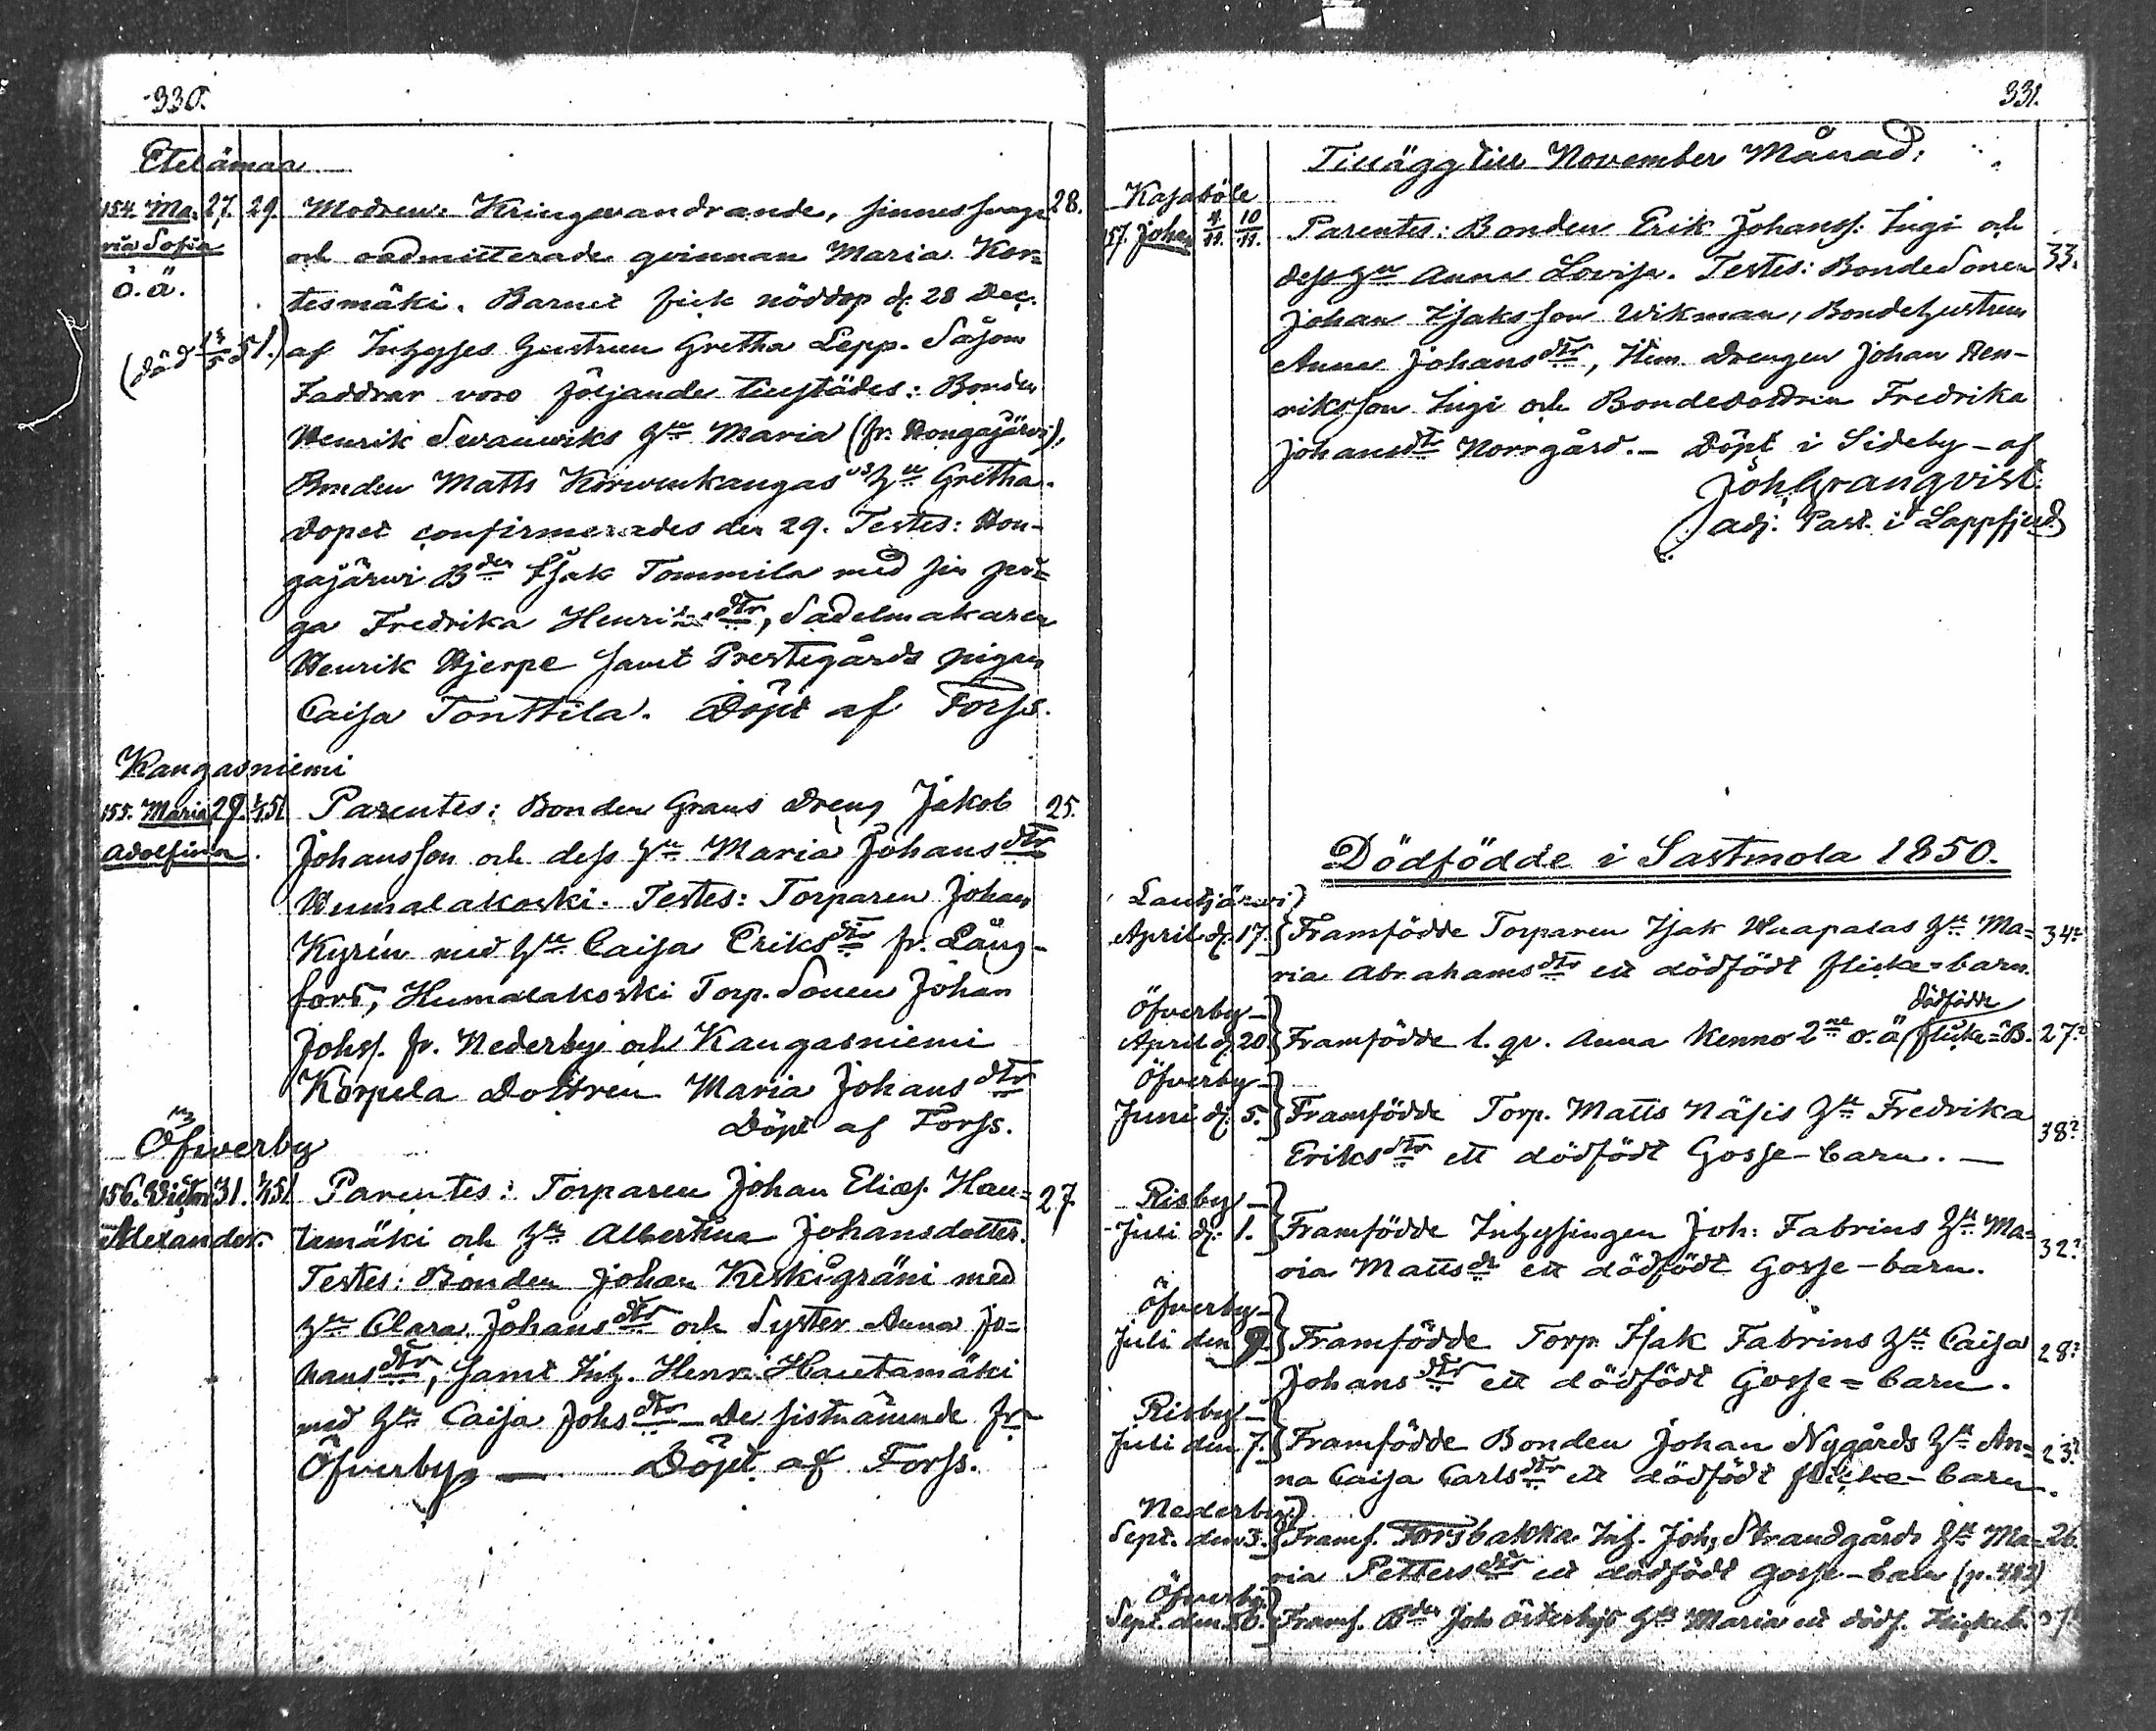 330.
Etelämaa
154. Ma- 27. 29. Modren: Kringvandrande, sinnessvaga 28.
ria Sofia och oadmitterade qvinnan Maria Kor=
o. ä. tesmäki. Barnet fick nöddop d. 28 Dec.
(död 13/5 51.) af Inhyses Hustrun Gretha Lepp. Såsom
Faddrar voro följande tillstädes: Bonden
Henrik Svanwiks Hu Maria (fr. Hongajärvi),
Bonden Matts Korwenkangas's Hu Gretha.
Dopet confirmerades den 29. Testes: Hon-
gajärwi Bden Isak Tommila med sin pi=
ga Fredrika Henriksdtr, Sadelmakaren
Henrik Hjerpe samt Prestegårds pigan
Caisa Tonttila. Döpt af Forss.
Kangasniemi
155. Maria 29. 1/1 51 Parentes: Bonden Grans Dreng Jakob 25.
Adolfina. Johansson och dess Hu Maria Johansdtr
Humalakoski. Testes: Torparen Johan
Kyrén med Hu Caisa Eriksdtr fr. Lång-
fors, Humalakoski Torp. Sonen Johan
Johss. fr. Nederby och Kangasniemi
Korpela Dottren Maria Johansdtr
Döpt af Forss.
Öfwerby
156. Victor 31. 1/1 51 Parentes: Torparen Johan Eliæs. Hau= 27.
Alexander. tamäki och Hu Albertina Johansdotter.
Testes: Bonden Johan Keskigräni med
Hu Clara Johansdtr och Syster Anna Jo=
hansdtr, samt Inh. Henr. Hautamäki
med Hu Caisa Johsdtr – De sistnämnde fr
Öfverby — Döpt af Forss.
331.
Tillägg till November Månad:
Kasaböle
157. Johan 9/11 10/11 Parentes: Bonden Erik Johanss: Ingi och 33.
dess Hu Anna Lovisa. Testes: BondeSonen
Johan Isaksson Wikman, Bondehustrun
Anna Johansdtr, Hem Drengen Johan Hen-
riksson Ingi och Bondedottren Fredrika
Johansdtr Norrgård. – Döpt i Sideby – af
Joh Granqvist.
adj. Past. i Lappfjerd
Dödfödde i Sastmola 1850.
Lautjärwi)
April d. 17. Framfödde Torparen Isak Haapalas Hu Ma= 34?
ria Abrahamsdtr ett dödfödt flicke=barn.
Öfverby – dödfödde
April d. 20. Framfödde l. qv. Anna Kenno 2ne o. ä flicke=B. 27?
Öfverby –
Juni d. 5. Framfödde Torp. Matts Näsis Hu Fredrika 38?
Eriksdtr ett dödfödt Gosse-barn. —
Risby –
Juli d. 1. Framfödde Inhysingen Joh: Fabrins Hu Ma= 32?
ria Mattsdr ett dödfödt Gosse-barn.
Öfverby –
Juli den 9. Framfödde Torp. Isak Fabrins Hu Caisa 28?
Johansdtr ett dödfödt Gosse=barn.
Risby –
Juli den 7. Framfödde Bonden Johan Nygårds Hu An= 23?
na Caisa Carlsdtr ett dödfödt flicke-barn.
Nederby)
Sept. den 3. Framf. Forsbakka Inh. Joh, Strandgårds Hu Ma- 26.
ria Pettersdtr ett dödfödt gosse-barn
Öfverby)
Sept. den 30. Framf. Bden Joh Österbys Hu Maria ett dödf. Flickeb. 37